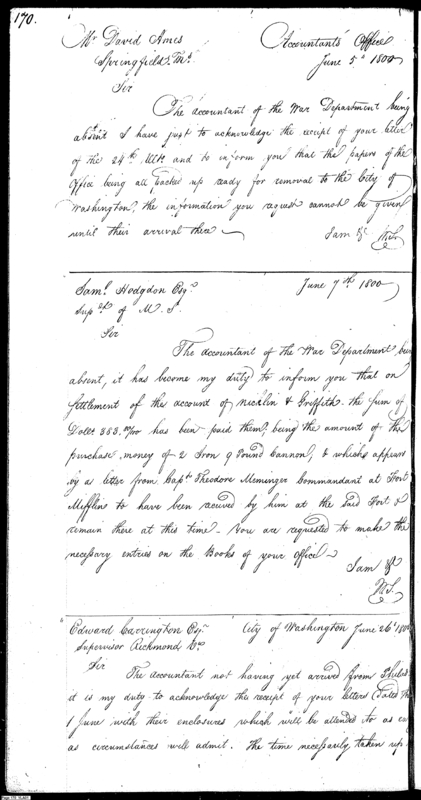 170.
Mr David Ames
Accountants Office
Springfield Ms.
June 5th 1800
Sir
The accountant of the War Department being
absent I have just to acknowledge the receipt of your letter
of the 24th Ultc. and to inform you that the papers of the
Office being all packed up ready for removal to the City of
Washington, the information you request cannot be given
until their arrival there
I am &c
W.S.
Saml. Hodgdon Esqr.
June 7th 1800
Supdt of M. S.
Sir
The accountant of the War Department bein
absent, it has become my duty to inform you that on
settlement of the account of Nicklin & Griffith the Sum of
Dolls. 383. /100 has been paid them, being the amount of the
purchase money of 2 Iron 9 Pound Cannon, & which appears
by a letter from Capt. Theodore Meminger Commandant at Fort
Mifflin to have been received by him at the said Fort &
remain there at this time - You are requested to make the
necessary entries on the Books of your office
I am &c
W.S.
Edward Carrington Esqr.
City of Washington June 26th 1800
Supervisor Richmond Va
Sir
The accountant not having yet arrived from Philad
it is my duty to acknowledge the receipt of your letters dated the
1 June with their enclosures which will be attended to as ea
as circumstances will admit. The time necessarily taken up